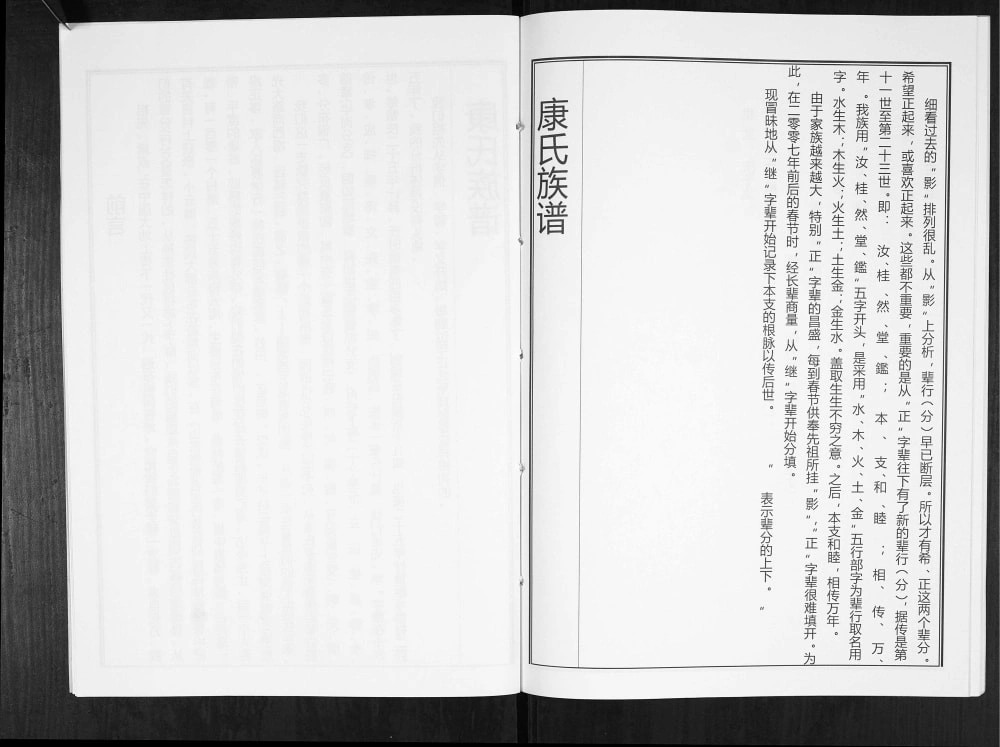 细看过去的“影”排列很乱。从“影”上分析，辈行（分）早已断层。所以才有希、正这两个辈分。
希望正起来，或喜欢正起来。这些都不重要，重要的是从“正”字辈往下有了新的辈行（分），据传是第
十一世至第二十三世。即：汝、桂、然、堂、鑑；本、支、和、睦；相、传、万、
年。我族用“汝、桂、然、堂、鑑”五字开头，是采用“水、木、火、土、金”五行部字为辈行取名用
字。水生木；木生火；火生土；土生金；金生水。盖取生生不穷之意。之后，本支和睦，相传万年。
由于家族越来越大，特别“正”字辈的昌盛，每到春节供奉先祖所挂“影”，“正”字辈很难填开。为
此，在二零零七年前后的春节时，经长辈商量，从“继”字辈开始分填。
现冒昧地从“继”字辈开始记录下本支的根脉以传后世。 “ 表示辈分的上下。”
康氏族谱